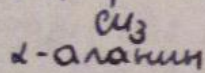 CH3
α-аланин